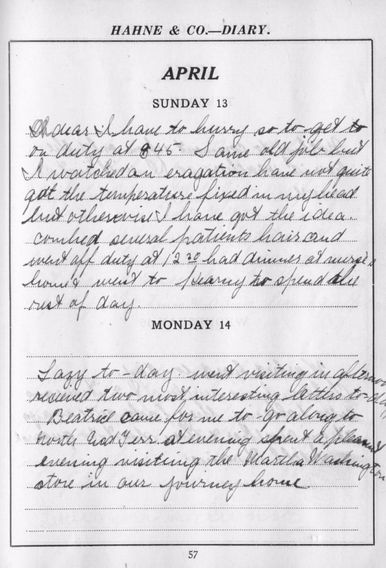 HAHNE & CO.—DIARY.
APRIL
SUNDAY 13
Oh dear I have to hurry so to get to
on duty at 845 Same old job but
I watched an eragation have not quite
got the temperature fixed in my head
but otherwise I have got the idea.
combed several patients hair and
went off duty at 12 30 had dinner at nurse's
home went to to spend the
rest of day.
MONDAY 14
Lazy to-day. went visiting in afternoon
received two most interesting letters to-
Beatrice came for me to go along to
north End Terr at evening spent a pleasant
evening visiting the Martha Washington
store in our journey home
57